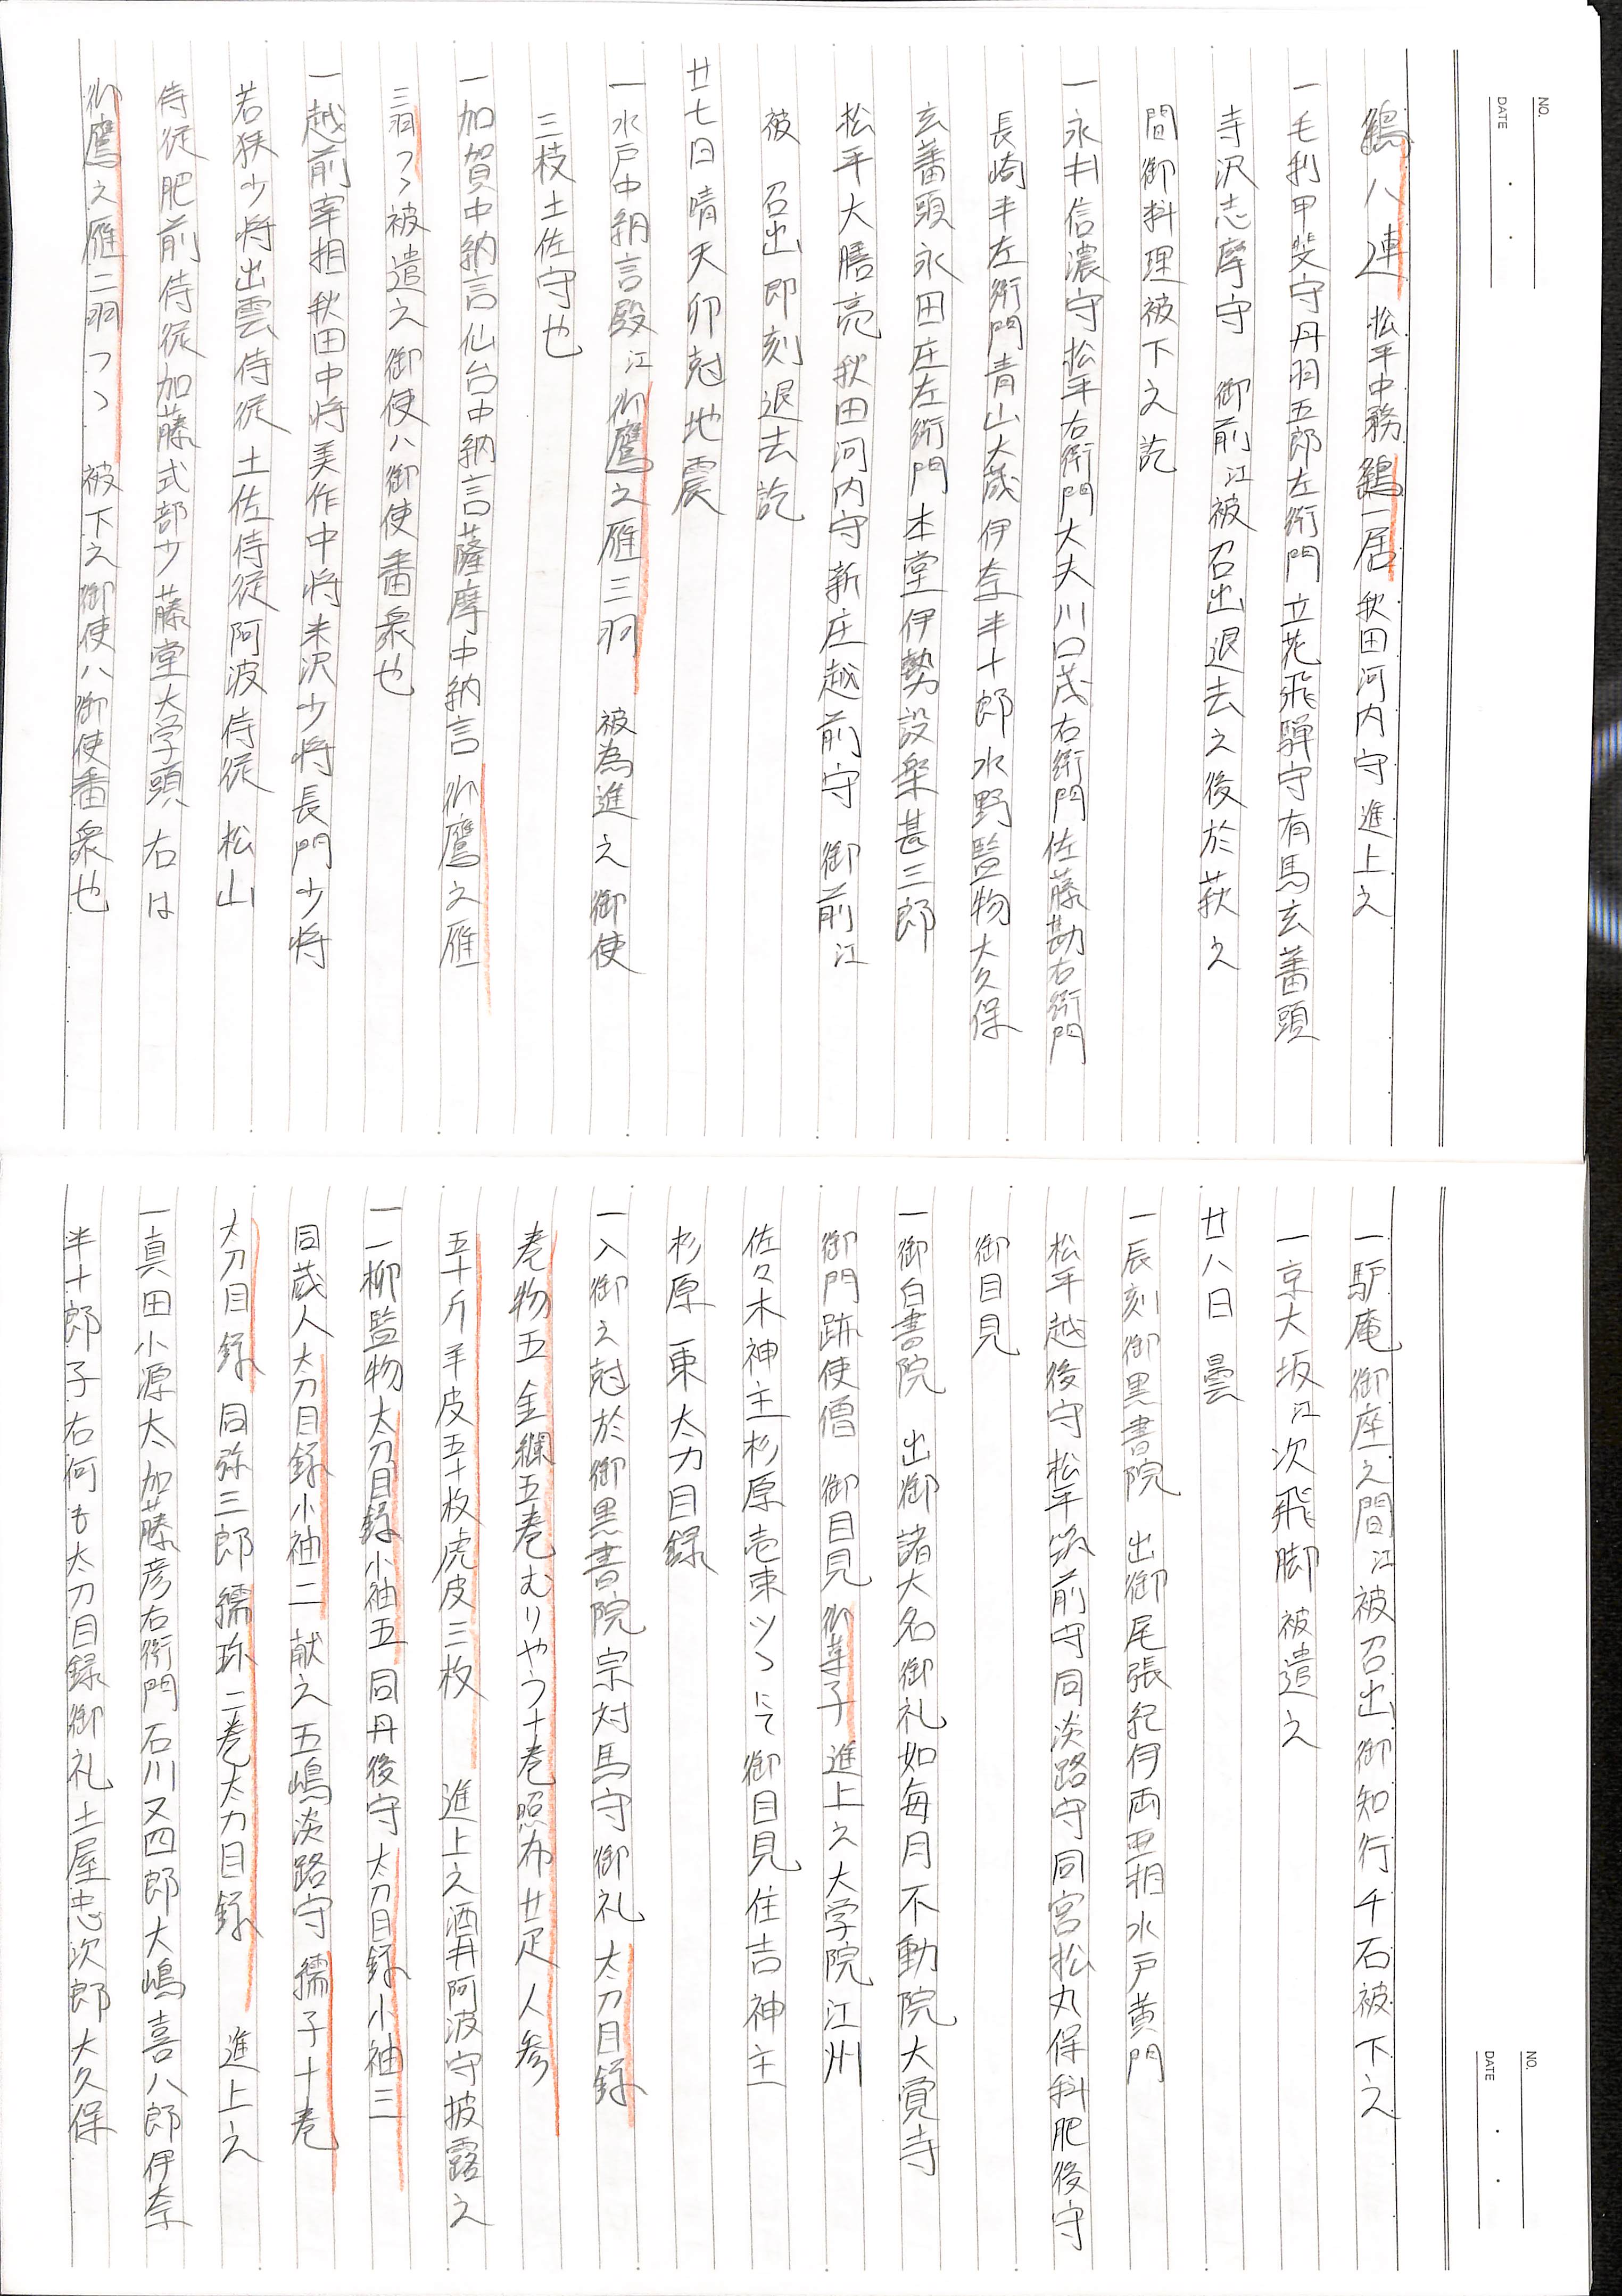 NO.
DATE
鷂八連 松平中務鷂一居秋田河内守進上之
一毛利甲斐守丹羽五郎左衛門立花飛騨守有馬玄蕃頭
寺沢志摩守 御前江被召出退去之後於萩之
間御料理被下之訖
一永井信濃守松平右衛門大夫川口茂右衛門佐藤勘右衛門
長崎半左衛門青山大蔵伊奈半十郎水野監物大久保
玄蕃頭永田庄左衛門本堂伊勢設楽甚三郎
松平大膳亮秋田河内守新庄越前守 御前江
被 召出即刻退去訖
廿七日晴天卯尅地震
一水戸中納言殿江御鷹之雁三羽 被為進之御使
三枝土佐守也
一加賀中納言仙台中納言薩摩中納言御鷹之雁
三羽つゝ被遣之御使ハ御使番衆也
一越前宰相秋田中将美作中将米沢少将長門少将
若狭少将出雲侍従土佐侍従阿波侍従 松山
侍従肥前侍従加藤式部少藤堂大学頭 右は
御鷹之雁二羽つゝ 被下之御使ハ御使番衆也
NO.
DATE
一驢庵御座之間江被召出御知行千石被下之
一京大坂江次飛脚 被遣之
廿八日 曇
一辰刻御黒書院 出御尾張紀伊両亜相水戸黄門
松平越後守松平筑前守同淡路守同宮松丸保科肥後守
御目見
一御白書院 出御諸大名御礼如毎月不動院大覚寺
御門跡使僧 御目見御菓子進上之大学院江州
佐々木神主杉原壱束ツゝにて御目見住吉神主
杉原一束太刀目録
一入御之尅於御黒書院宗対馬守御礼太刀目録
巻物五金襴五巻むりやう十巻照布廿疋人参
五十斤羊皮五十枚虎皮三枚 進上之酒井阿波守披露之
一一柳監物太刀目録小袖五同丹後守太刀目録小袖三
同蔵人太刀目録小袖二献之五嶋淡路守繻子十巻
太刀目録同弥三郎繻珎二巻太刀目録 進上之
一真田小源太加藤彦右衛門石川又四郎大嶋喜八郎伊奈
半十郎子右何も太刀目録御礼土屋忠次郎大久保